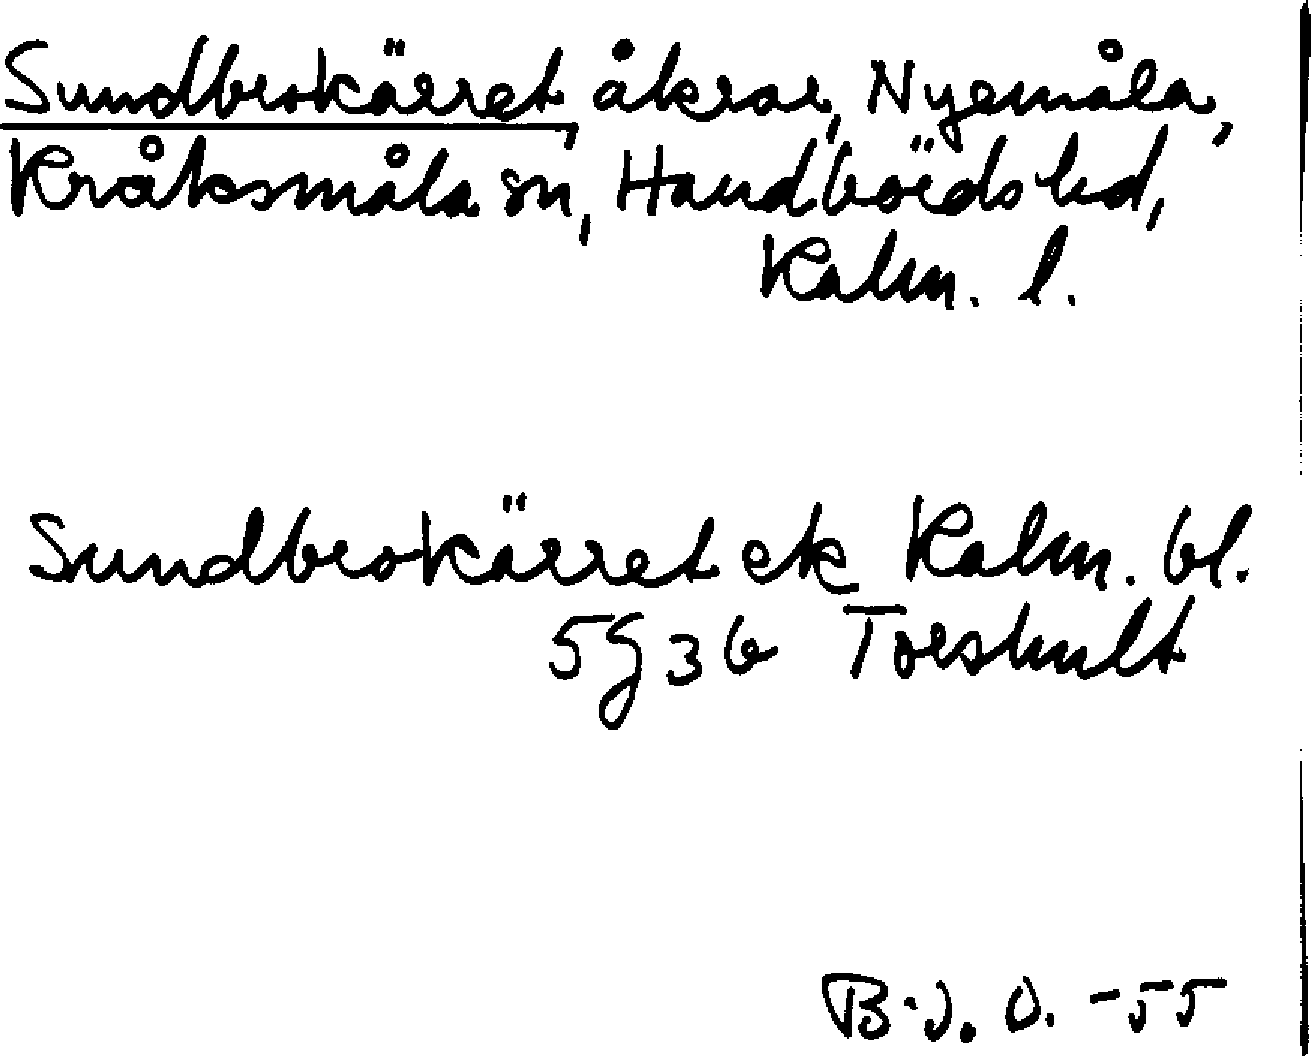 Sundbrokärret, åkrar, Nyemåla,
Kråksmåla sn, Handbörds hd,
Kalm. l.
Sundbrokärret ek Kalm. bl.
5g 3b Torshult
B-J. O. -55